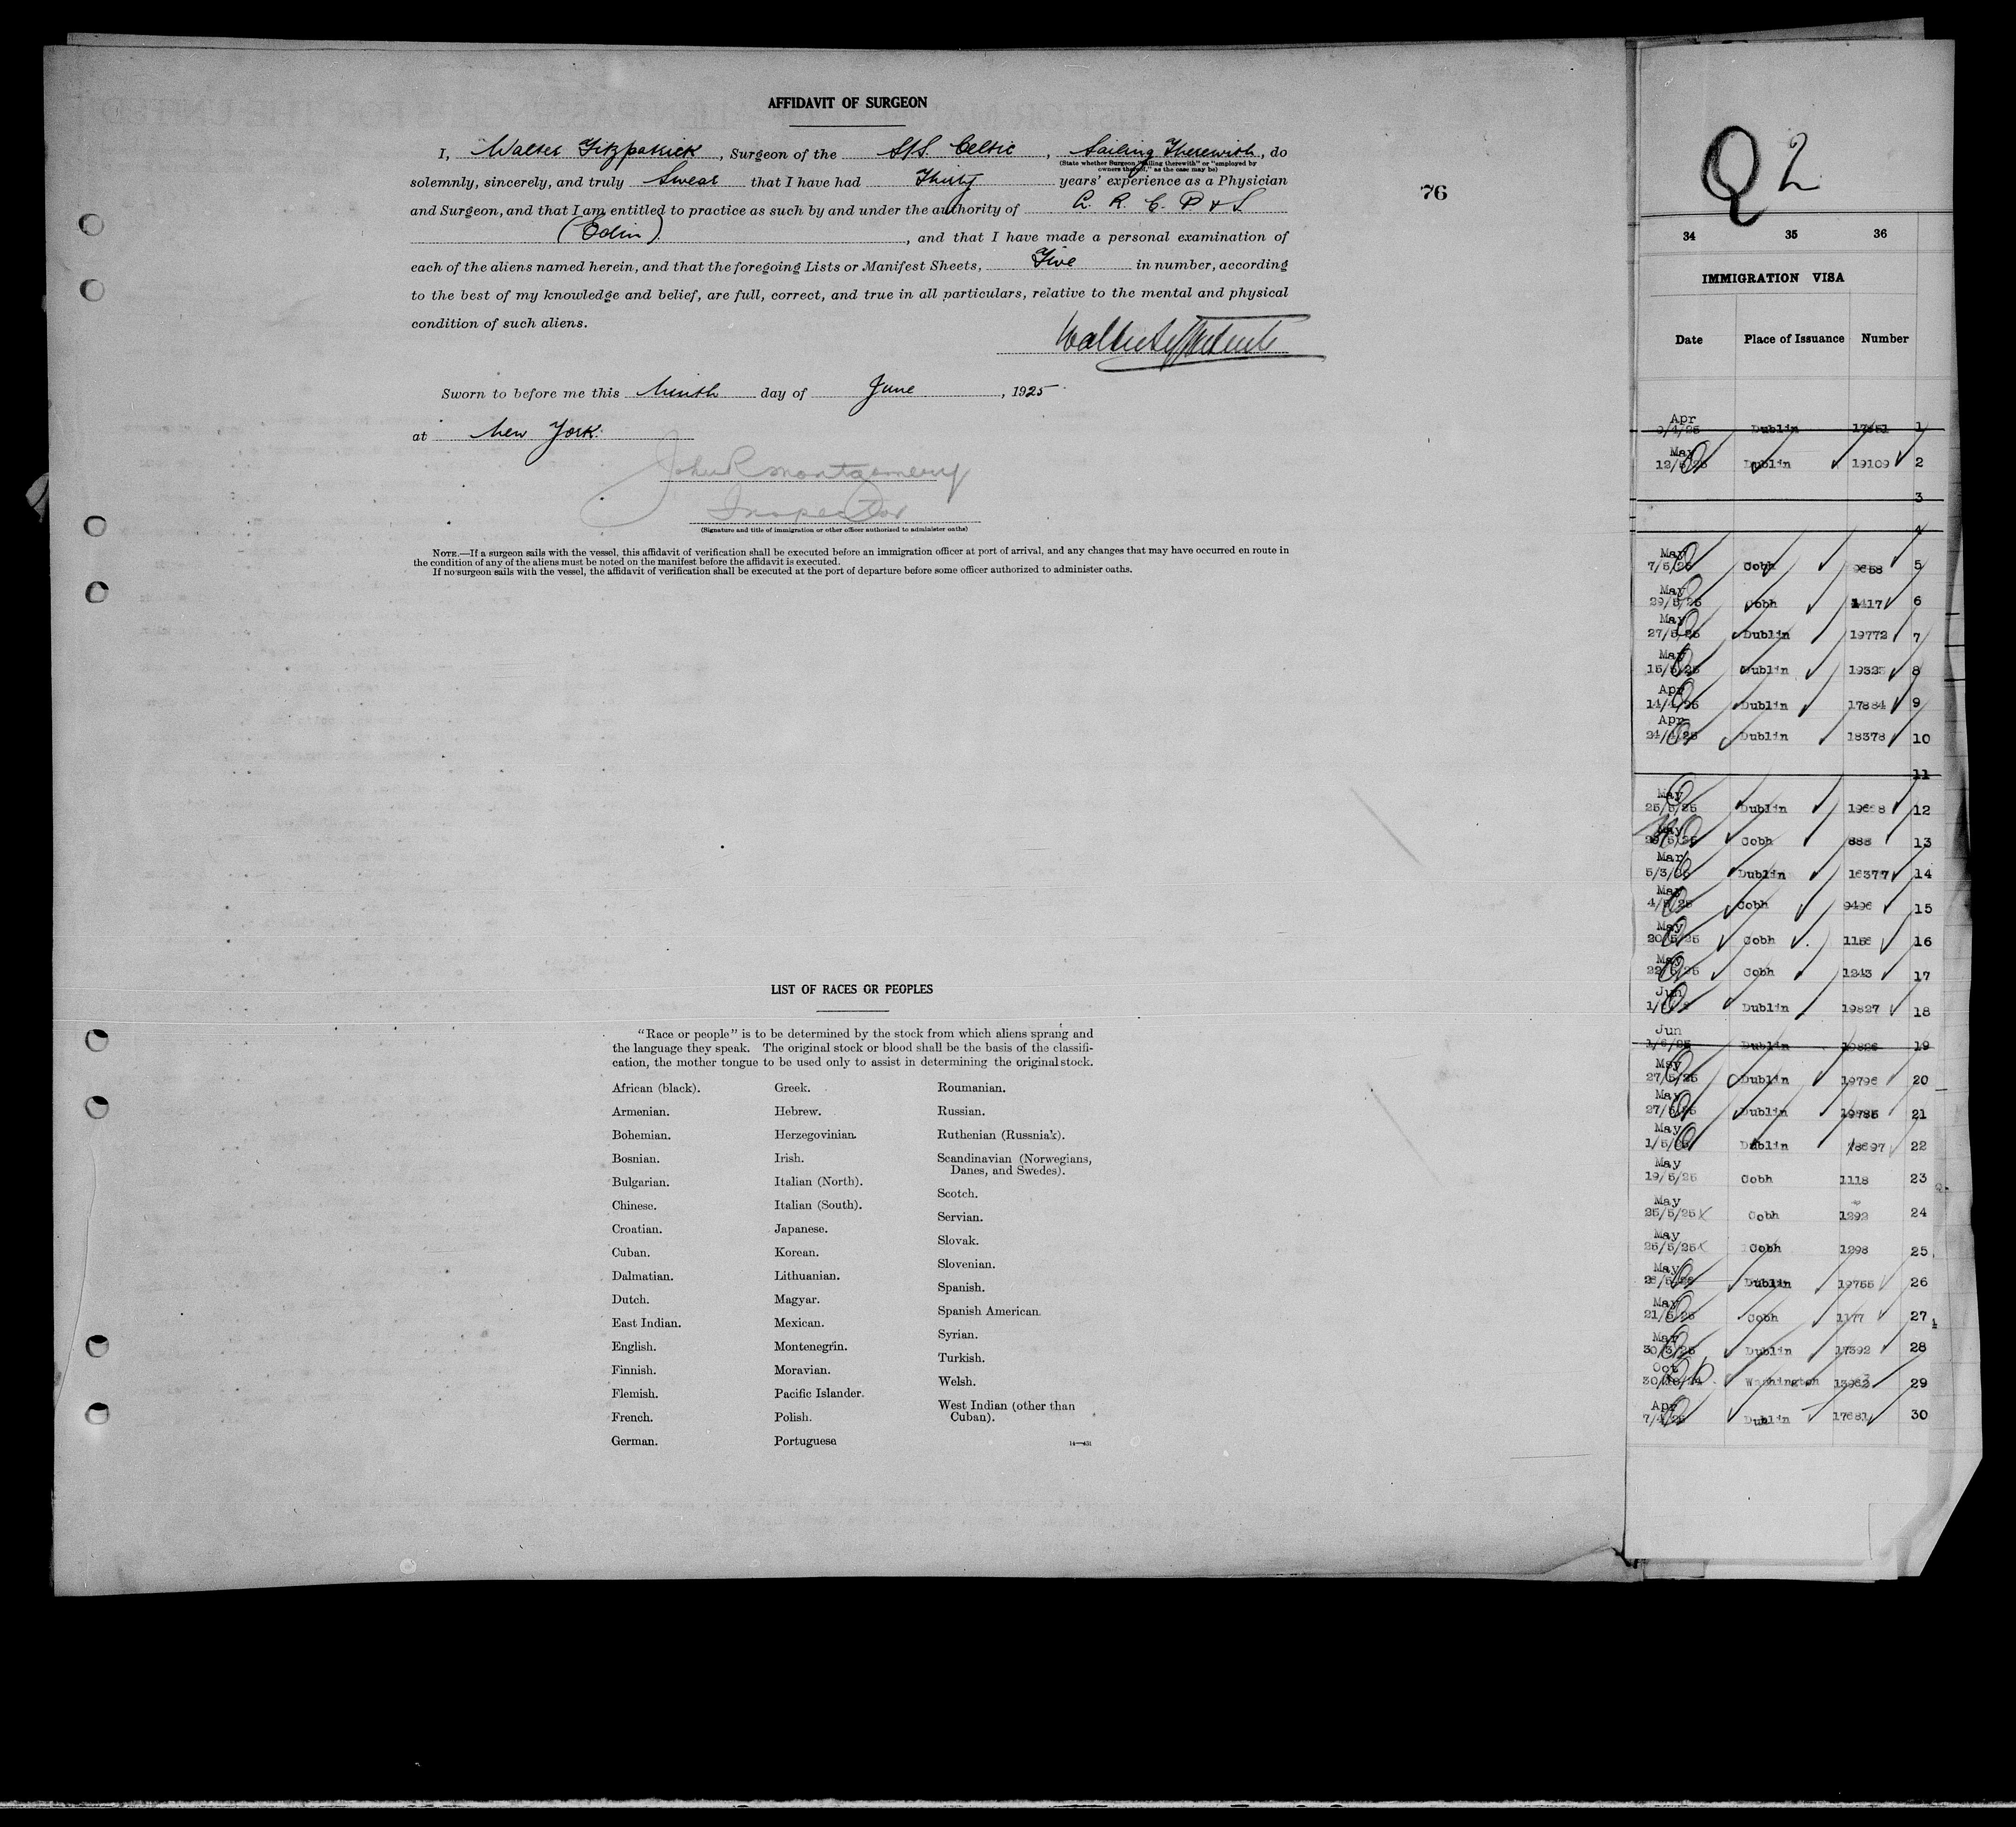 AFFIDAVIT OF SURGEON
I, Walter Fitzpatrick, Surgeon of the S/S. Celtic, Sailing Therewith, do
(State whether Surgeon "sailing therewith" or "employed by
owners thereof," as the case may be)
solemnly, sincerely, and truly Swear that I have had Thirty years' experience as a Physician
and Surgeon, and that I am entitled to practice as such by and under the authority of L. R. C. P & S
(Edin), and that I have made a personal examination of
each of the aliens named herein, and that the foregoing Lists or Manifest Sheets, Five in number, according
to the best of my knowledge and belief, are full, correct, and true in all particulars, relative to the mental and physical
condition of such aliens.
Sworn to before me this Ninth day of June, 1925
at New York.
John R Montgomery
Inspector
(Signature and title of immigration or other officer authorized to administer oaths)
NOTE.—If a surgeon sails with the vessel, this affidavit of verification shall be executed before an immigration officer at port of arrival, and any changes that may have occurred en route in
the condition of any of the aliens must be noted on the manifest before the affidavit is executed.
If no surgeon sails with the vessel, the affidavit of verification shall be executed at the port of departure before some officer authorized to administer oaths.
76
LIST OF RACES OR PEOPLES
"Race or people" is to be determined by the stock from which aliens sprang and
the language they speak. The original stock or blood shall be the basis of the classifi-
cation, the mother tongue to be used only to assist in determining the original stock.
African (black).
Armenian.
Bohemian.
Bosnian.
Bulgarian.
Chinese.
Croatian.
Cuban.
Dalmatian.
Dutch.
East Indian.
English.
Finnish.
Flemish.
French.
German.
Greek.
Hebrew.
Herzegovinian.
Irish.
Italian (North).
Italian (South).
Japanese.
Korean.
Lithuanian.
Magyar.
Mexican.
Montenegrin.
Moravian.
Pacific Islander.
Polish.
Portuguese
Roumanian.
Russian.
Ruthenian (Russniak).
Scandinavian (Norwegians,
Danes, and Swedes).
Scotch.
Servian.
Slovak.
Slovenian.
Spanish.
Spanish American.
Syrian.
Turkish.
Welsh.
West Indian (other than
Cuban).
14—451
Q2
34 35 36
IMMIGRATION VISA
Date Place of Issuance Number
Apr
9/4/25 Dublin 1
May
12/5/25 Dublin 19109 2
3
4
May
7/5/25 Cobh 9658 5
May
29/5/25 Cobh 1417 6
May
27/5/25 Dublin 19772 7
May
15/5/25 Dublin 8
Apr
14/4/25 Dublin 17884 9
Apr
24/4/25 Dublin 18378 10
11
May
25/5/25 Dublin 12
May
Cobh 888 13
Mar
5/3/25 Dublin 16377 14
May
4/5/25 Cobh 9496 15
May
20/5/25 Cobh 1156 16
May
22/5/25 Cobh 1243 17
Jun
Dublin 19827 18
Jun
1/6/25 Dublin 19826 19
May
27/5/25 Dublin 19796 20
May
27/5/25 Dublin 19785 21
May
1/5/25 Dublin 18697 22
May
19/5/25 Cobh 1118 23
May
25/5/25 Cobh 1292 24
May
25/5/25 Cobh 1298 25
May
Dublin 19755 26
May
21/5/25 Cobh 1177 27
May
30/3/25 Dublin 17392 28
Oct
30/10/24 Washington 29
Apr
7/4/25 Dublin 17681 30